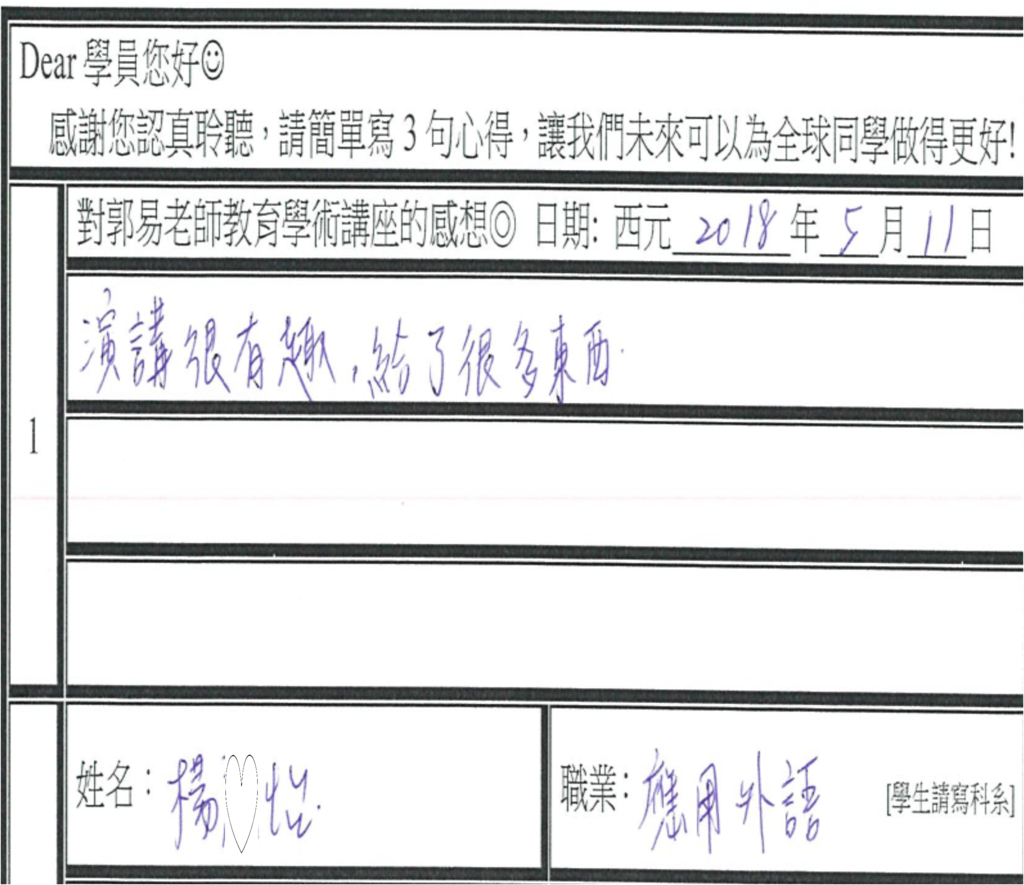 Dear 學員您好☺
感謝您認真聆聽,請簡單寫 3 句心得,讓我們未來可以為全球同學做得更好!
對郭易老師教育學術講座的感想◎ 日期: 西元 2018 年 5 月 11 日
1
演講很有趣,給了很多東西.
姓名:楊♡怡.
職業:應用外語 [學生請寫科系]